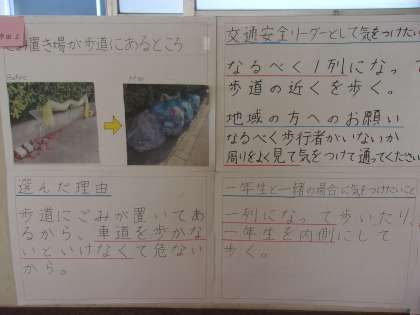 置き場が歩道にあるところ
選んだ理由
歩道にごみが置いてあ
るから、車道を歩かな
いといけなくて危ない
から。
交通安全リーダーとして気をつけたい
なるべく1列になって
歩道の近くを歩く。
地域の方へのお願い
なるべく歩行者がいないか
周りをよく見て気をつけて通ってください
一年生と一緒の場合に気をつけたいこと
一列になって歩いたり、
一年生を内側にして
歩く。